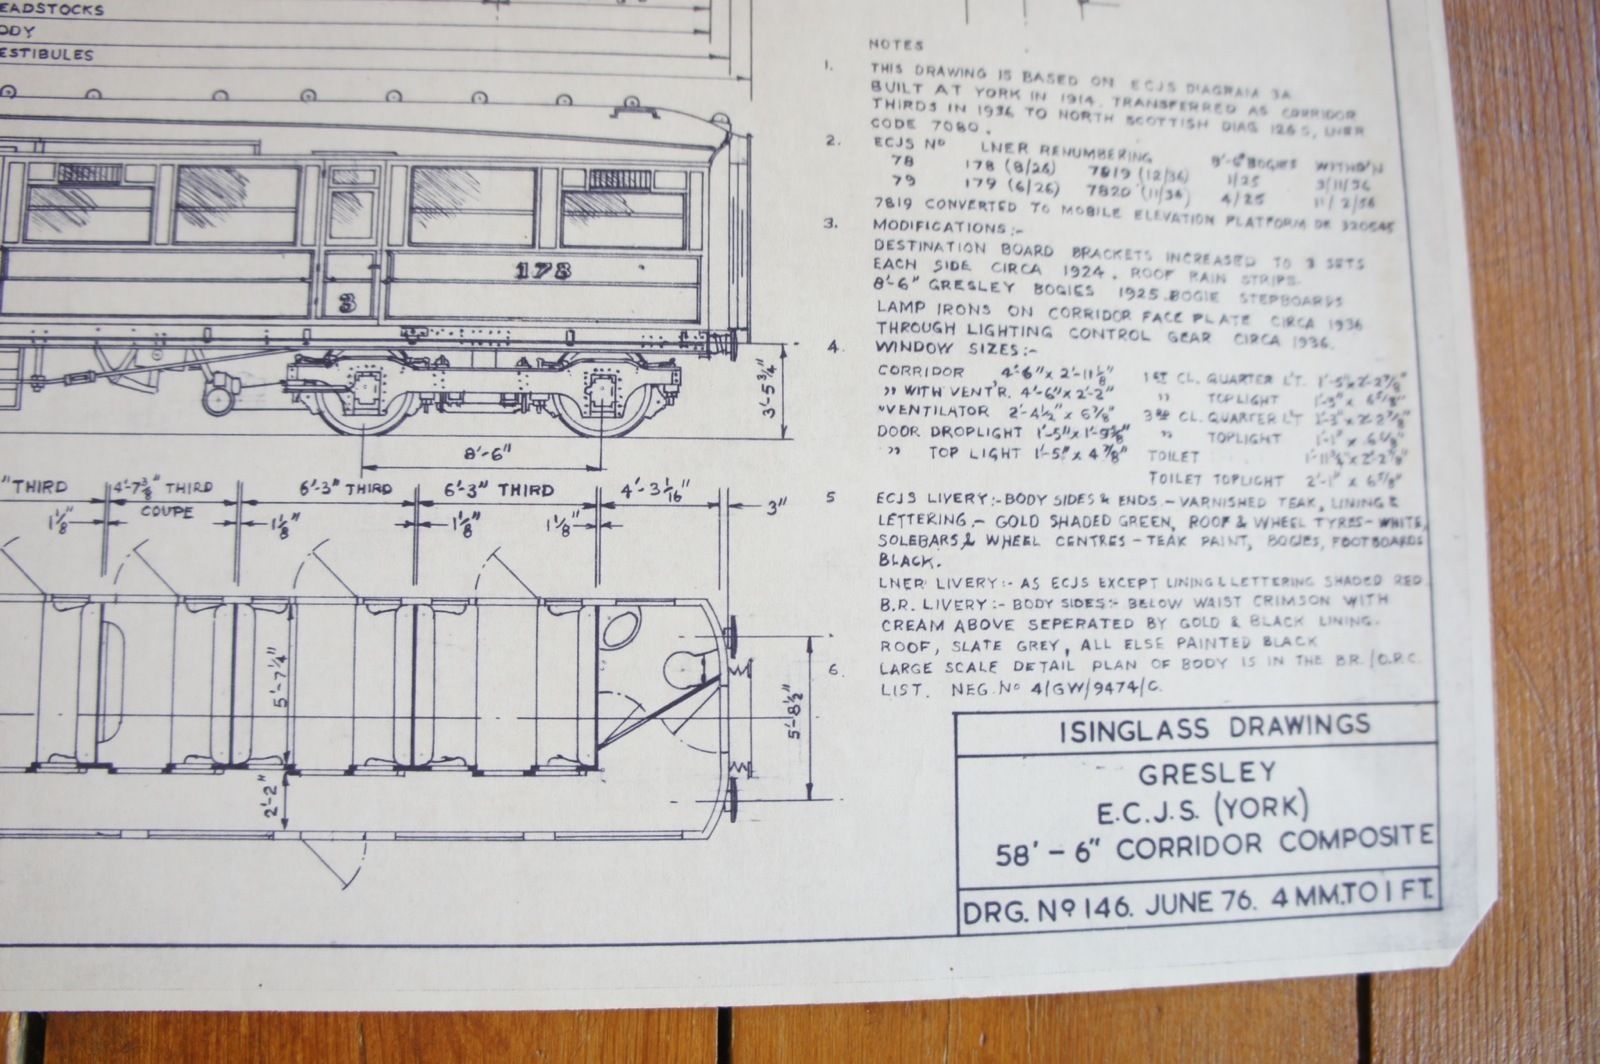 EADSTOCKS
ODY
ESTIBULES
178
3
3'-5¾"
8'-6"
"THIRD
4'-7⅜" THIRD
COUPE
6'-3" THIRD
6'-3" THIRD
4'-3 1/16"
3"
1⅛"
1⅛"
1⅛"
1⅛"
5'-7¼"
2'-2"
5'-8½"
NOTES
1. THIS DRAWING IS BASED ON ECJS DIAGRAM 3A
BUILT AT YORK IN 1914. TRANSFERRED AS CORRIDOR
THIRDS IN 1936 TO NORTH SCOTTISH DIAG 126S, LNER
CODE 7080.
2. ECJS Nº LNER RENUMBERING 8'-6" BOGIES WITHD'N
78 178 (8/26) 7819 (12/36) 1/25
79 179 (6/26) 7820 (11/36) 4/25
7819 CONVERTED TO MOBILE ELEVATION PLATFORM DE
3. MODIFICATIONS:-
DESTINATION BOARD BRACKETS INCREASED TO 3 SETS
EACH SIDE CIRCA 1924. ROOF RAIN STRIPS.
8'-6" GRESLEY BOGIES 1925. BOGIE STEPBOARDS
LAMP IRONS ON CORRIDOR FACE PLATE CIRCA 1936
THROUGH LIGHTING CONTROL GEAR CIRCA 1936.
4. WINDOW SIZES:-
CORRIDOR 4'-6" x 2'-11⅛" 1ST CL. QUARTER L'T.
" WITH VENT'R. 4'-6" x 2'-2" " TOPLIGHT
"VENTILATOR 2'-4½" x 6⅞" 3RD CL. QUARTER L'T
DOOR DROPLIGHT 1'-5" x " TOPLIGHT
" TOP LIGHT 1'-5" x 4⅞" TOILET
TOILET TOPLIGHT 2'-1" x 6⅞"
5 ECJS LIVERY:- BODY SIDES & ENDS.- VARNISHED TEAK, LINING &
LETTERING,- GOLD SHADED GREEN, ROOF & WHEEL TYRES- WHITE,
SOLEBARS & WHEEL CENTRES - TEAK PAINT, BOGIES, FOOTBOARDS
BLACK.
LNER LIVERY:- AS ECJS EXCEPT LINING & LETTERING SHADED RED.
B.R. LIVERY:- BODY SIDES:- BELOW WAIST CRIMSON WITH
CREAM ABOVE SEPERATED BY GOLD & BLACK LINING.
ROOF, SLATE GREY, ALL ELSE PAINTED BLACK
6. LARGE SCALE DETAIL PLAN OF BODY IS IN THE B.R./O.P.C.
LIST. NEG. Nº 4/GW/9474/C.
ISINGLASS DRAWINGS
GRESLEY
E.C.J.S. (YORK)
58' - 6" CORRIDOR COMPOSITE
DRG. Nº 146. JUNE 76. 4 MM. TO 1 FT.